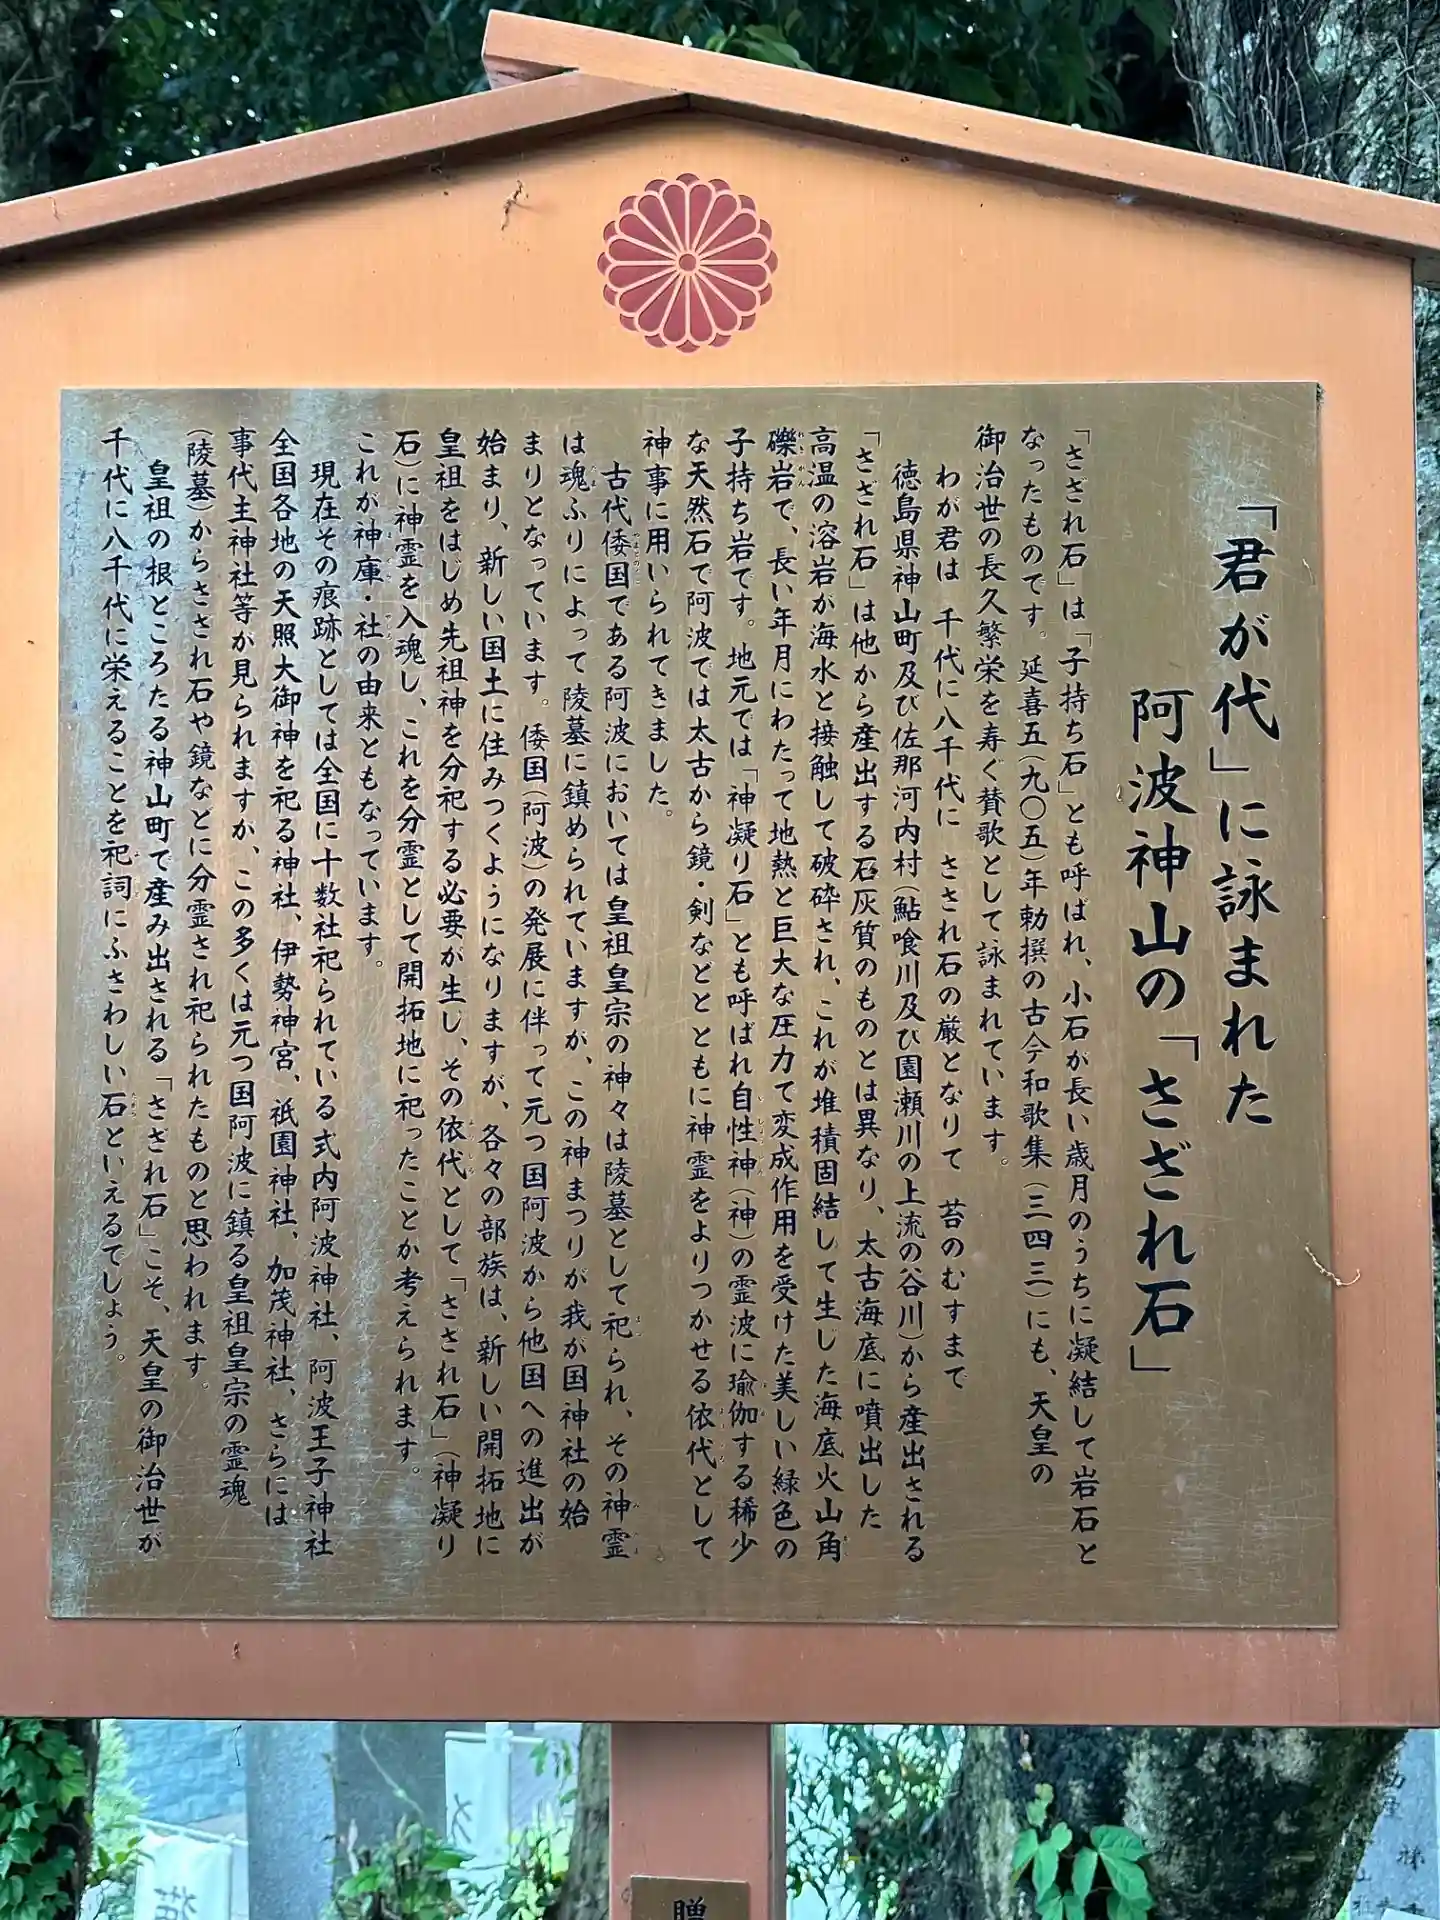 「君が代」に詠まれた
阿波神山の「さざれ石」
「さざれ石」は「子持ち石」とも呼ばれ、小石が長い歳月のうちに凝結して岩石と
なったものです。延喜五(九〇五)年勅撰の古今和歌集(三四三)にも、天皇の
御治世の長久繁栄を寿ぐ賛歌として詠まれています。
わが君は 千代に八千代に さざれ石の厳となりて 苔のむすまで
徳島県神山町及び佐那河内村(鮎喰川及び園瀬川の上流の谷川)から産出される
「さざれ石」は他から産出する石灰質のものとは異なり、太古海底に噴出した
高温の溶岩が海水と接触して破砕され、これが堆積固結して生じた海底火山角
礫岩で、長い年月にわたって地熱と巨大な圧力で変成作用を受けた美しい緑色の
子持ち岩です。地元では「神凝り石」とも呼ばれ自性神(神)の霊波に瑜伽する稀少
な天然石で阿波では太古から鏡・剣などとともに神霊をよりつかせる依代として
神事に用いられてきました。
古代倭国である阿波においては皇祖皇宗の神々は陵墓として祀られ、その神霊
は魂ふりによって陵墓に鎮められていますが、この神まつりが我が国神社の始
まりとなっています。倭国(阿波)の発展に伴って元つ国阿波から他国への進出が
始まり、新しい国土に住みつくようになりますが、各々の部族は、新しい開拓地に
皇祖をはじめ先祖神を分祀する必要が生し、その依代として「さされ石」(神凝り
石)に神霊を入魂し、これを分霊として開拓地に祀ったことか考えられます。
これが神庫・社の由来ともなっています。
現在その痕跡としては全国に十数社祀られている式内阿波神社、阿波王子神社
全国各地の天照大御神を祀る神社、伊勢神宮、祇園神社、加茂神社、さらには
事代主神社等が見られますか、この多くは元つ国阿波に鎮る皇祖皇宗の霊魂
(陵墓)からさされ石や鏡などに分霊され祀られたものと思われます。
皇祖の根ところたる神山町で産み出される「さざれ石」こそ、天皇の御治世が
千代に八千代に栄えることを祀詞にふさわしい石といえるてしょう。
贈